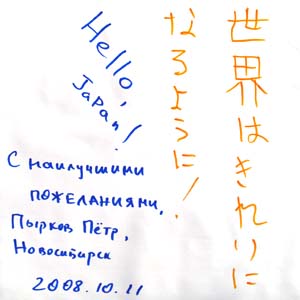 Hello,
Japan!
世界はきれいに
なるように!
С наилучшими
пожеланиями,
Пырков Пётр,
Новосибирск
2008.10.11